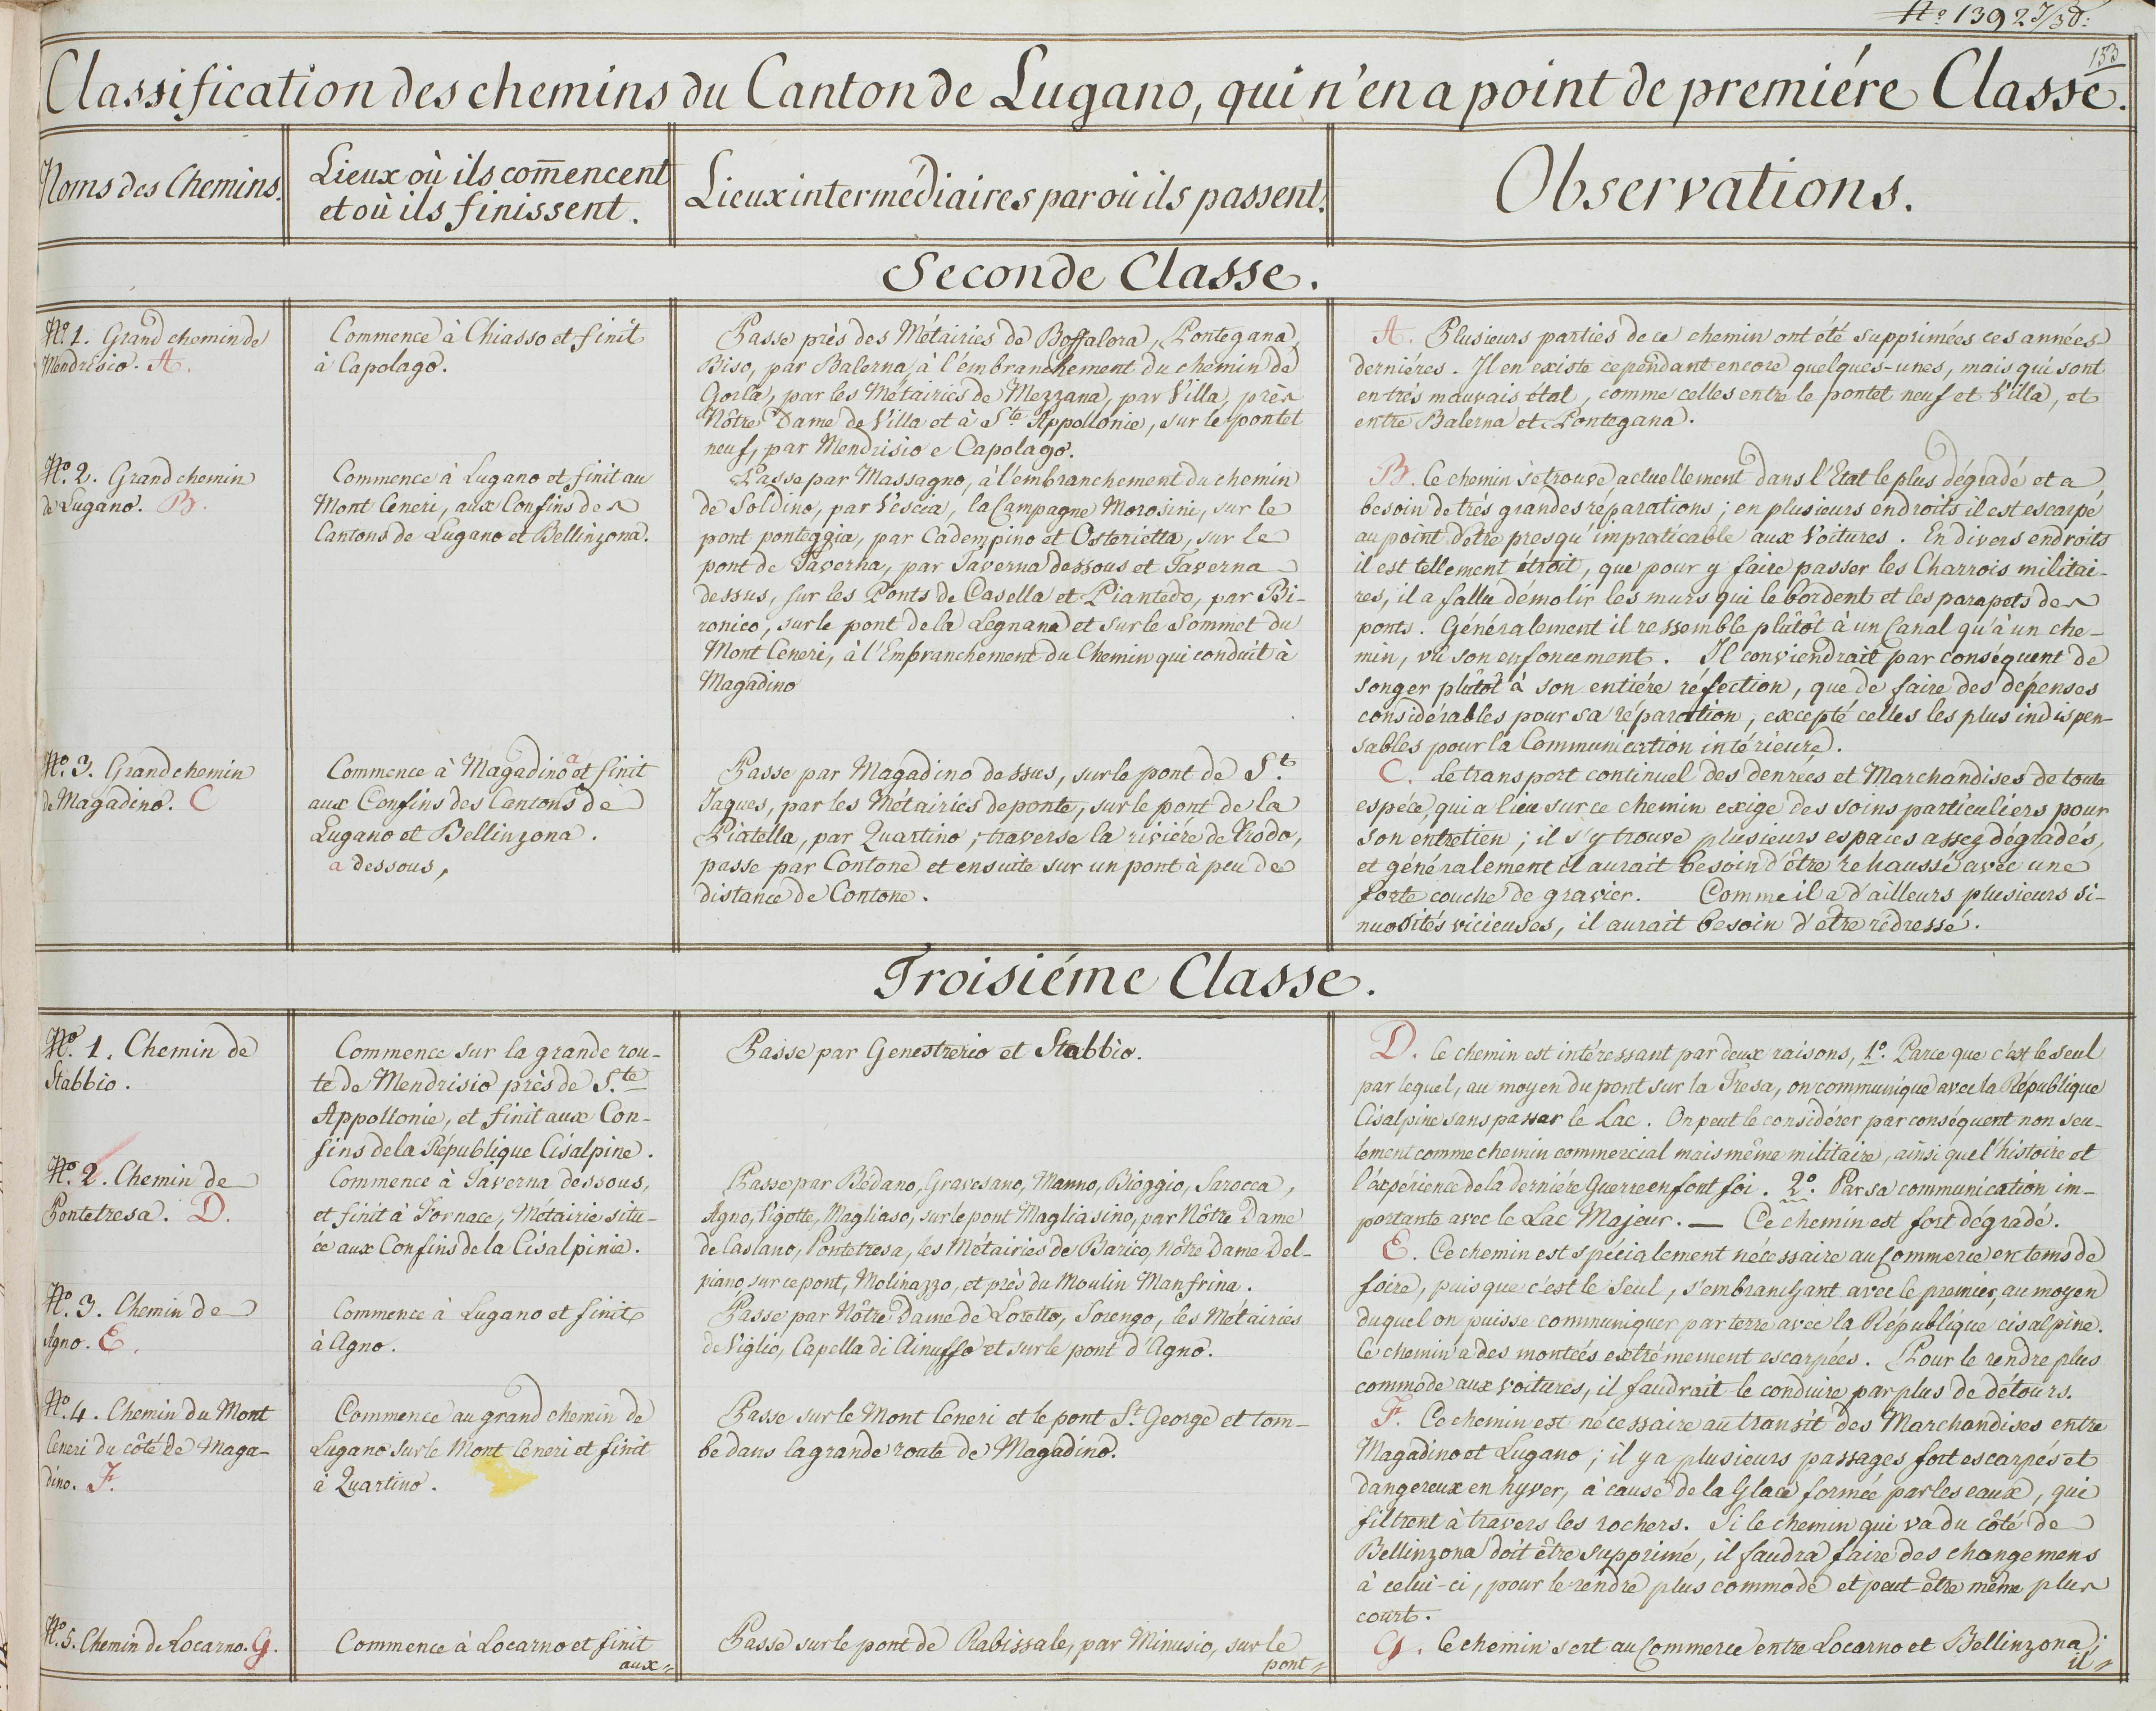 No 1392 7/30:
153
Classification des chemins du Canton de Lugano, qui n'en a point de premiére Classe.
Noms des Chemins.
Lieux où ils com̄encent
et où ils finissent.
Lieux intermédiaires par où ils passent.
Observations.
Seconde Classe.
No. 1. Grand chemin de
Mendrisio. A.
Commence à Chiasso et finit
à Capolago.
Passe près des Métairies de Boffalora, Pontegana,
Biso, par Balerna, à l'embranchement du chemin de
Gorla, par les Métairies de Mezzana, par Villa, près
Nôtre Dame de Villa et à Ste Appollonie, sur le pontet
neuf, par Mendrisio e Capolago.
A. Plusieurs parties de ce chemin ont été supprimées ces années
derniéres. Il en existe cependant encore quelques-unes, mais qui sont
en très mauvais état, comme celles entre le pontet neuf et Villa, et
entre Balerna et Pontegana.
No. 2. Grand chemin
de Lugano. B.
Commence à Lugano et finit au
Mont Ceneri, aux Confins des
Cantons de Lugano et Bellinzona.
Passe par Massagno, à l'embranchement du chemin
de Soldino, par Vescia, la Campagne Morosini, sur le
pont ponteggia, par Cadempino et Osterietta, sur le
pont de Taverna, par Taverna dessous et Taverna
dessus, sur les Ponts de Casella et Piantedo, par Bi-
ronico, sur le pont de la Legnana et sur le Sommet du
Mont Ceneri, à l'Embranchement du Chemin qui conduit à
Magadino
B. Ce chemin se trouve actuellement dans l'Etat le plus dégradé et a
besoin de très grandes réparations; en plusieurs endroits il est escarpé
au point d'être presqu'impraticable aux Voitures. En divers endroits
il est tellement étroit, que pour y faire passer les Charrois militai-
res, il a fallu démolir les murs qui le bordent et les parapets des
ponts. Généralement il ressemble plûtôt à un Canal qu'à un che-
min, vû son enfoncement. Il conviendrait par conséquent de
songer plûtôt à son entiére réfection, que de faire des dépenses
considérables pour sa réparation, excepté celles les plus indispen-
sables pour la Communication intérieure.
No. 3. Grand chemin
de Magadino. C
Commence à Magadino a et finit
aux Confins des Cantons de
Lugano et Bellinzona.
a dessous,
Passe par Magadino dessus, sur le pont de St.
Jaques, par les Métairies de ponte, sur le pont de la
Piatella, par Quartino, traverse la riviére de Trodo,
passe par Contone et ensuite sur un pont à peu de
distance de Contone.
C. Le transport continuel des denrées et Marchandises de toute
espéce, qui a lieu sur ce chemin exige des soins particuliers pour
son entretien; il s'y trouve plusieurs espaces assez dégradés,
et généralement il aurait besoin d'être rehaussé avec une
forte couche de gravier. Comme il a d'ailleurs plusieurs si-
nuosités vicieuses, il aurait besoin d'être rédressé.
Troisiéme Classe.
No. 1. Chemin de
Stabbio.
Commence sur la grande rou-
te de Mendrisio près de S.te
Appollonie, et finit aux Con-
fins de la République Cisalpine.
Passe par Genestrerio et Stabbio.
D. Ce chemin est intéressant par deux raisons, 1o. Parce que c'est le seul
par lequel, au moyen du pont sur la Tresa, on communique avec la République
Cisalpine sans passer le Lac. On peut le considérer par conséquent non seu-
lement comme chemin commercial mais même militaire, ainsi que l'histoire et
l'expérience de la derniére Guerre en font foi. 2o. Par sa communication im-
portante avec le Lac Majeur. — Ce chemin est fort dégradé.
No. 2. Chemin de
Pontetresa. D.
Commence à Taverna dessous,
et finit à Fornace, Métairie situ-
ée aux Confins de la Cisalpinie.
Passe par Bedano, Gravesano, Manno, Bioggio, Sarocca,
Agno, Vigotte, Magliaso, sur le pont Magliasino, par Nôtre Dame
de Caslano, Pontetresa, les Métairies de Barico, Nôtre Dame Del-
piano, sur ce pont, Molinazzo, et près du Moulin Manfrina.
E. Ce chemin est spécialement nécessaire au Commerce en tems de
foire, puisque c'est le Seul, s'embranchant avec le premier, au moyen
duquel on puisse communiquer par terre avec la République cisalpine.
Ce chemin a des montées extrêmement escarpées. Pour le rendre plus
commode aux voitures, il faudrait le conduire par plus de détours.
No. 3. Chemin de
Agno. E.
Commence à Lugano et finit
à Agno.
Passe par Nôtre Dame de Loretto, Sorengo, les Métairies
de Viglio, Capella di Ainuffo et sur le pont d'Agno.
No. 4. Chemin du Mont
Ceneri du côté de Maga-
dino. F.
Commence au grand chemin de
Lugano sur le Mont Ceneri et finit
à Quartino.
Passe sur le Mont Ceneri et le pont St. George et tom-
be dans la grande route de Magadino.
F. Ce chemin est nécessaire au transit des Marchandises entre
Magadino et Lugano; il y a plusieurs passages fort escarpés et
dangereux en hyver, à cause de la Glace formée par les eaux, qui
filtrent à travers les rochers. Si le chemin qui va du côté de
Bellinzona doit être supprimé, il faudra faire des changemens
à celui-ci, pour le rendre plus commode et peut-être même plus
court.
No. 5. Chemin de Locarno. G.
Commence à Locarno et finit
aux
Passe sur le pont de Rabissale, par Minusio, sur le
pont
G. Ce chemin sert au Commerce entre Locarno et Bellinzona;
il